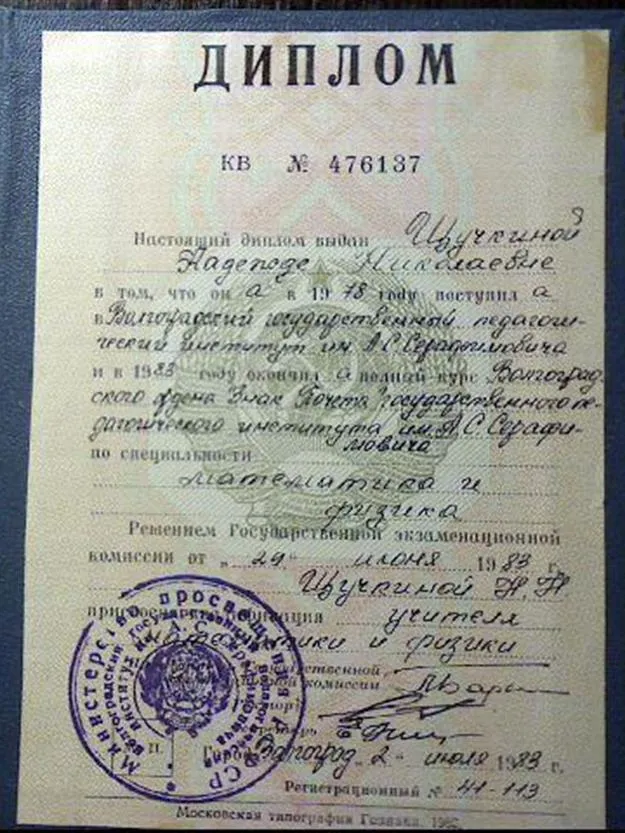 ДИПЛОМ
КВ № 476137
Настоящий диплом выдан Щучкиной
Надежде Николаевне
в том, что он а в 1978 году поступил а
в Волгоградский государственный педагоги-
ческий институт им. А.С. Серафимовича
и в 1983 году окончил а полный курс Волгоград-
ского ордена Знак Почета государственного пе-
дагогического института им. А.С. Серафи-
мовича
по специальности
математика и
физика
Решением Государственной экзаменационной
комиссии от „29“ июня 1983 г.
Щучкиной Н.Н
присвоена квалификация учителя
математики и физики
Государственной
комиссии
Город Волгоград „2“ июля 1983 г.
Регистрационный № 41-113
Московская типография Гознака.
Министерство просвещения РСФСР